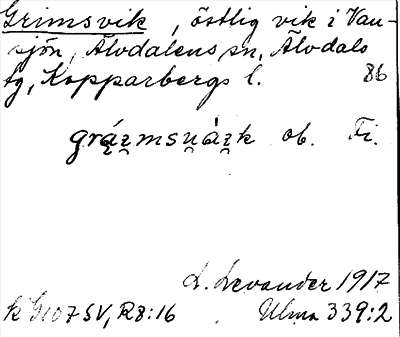 Grimsvik, östlig vik i Van-
sjön, Älvdalens sn, Älvdals
tg, Kopparbergs l. 86
gráẓmsṇáẓk ob. Fi.
L. Levander 1917
k G107 SV, R8:16 Ulma 339:2